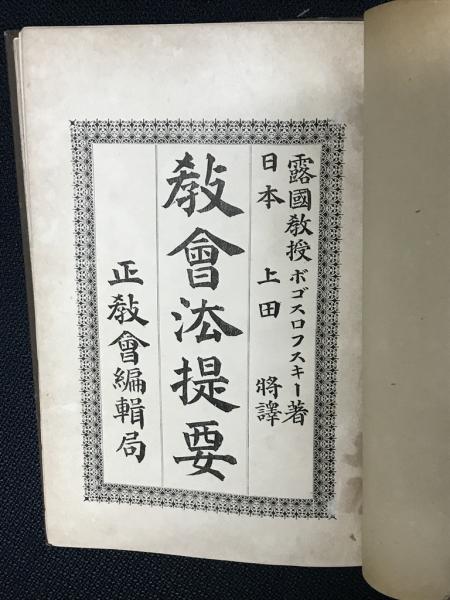 露國敎授ボゴスロフスキー著
日本 上田 將譯
敎會法提要
正敎會編輯局